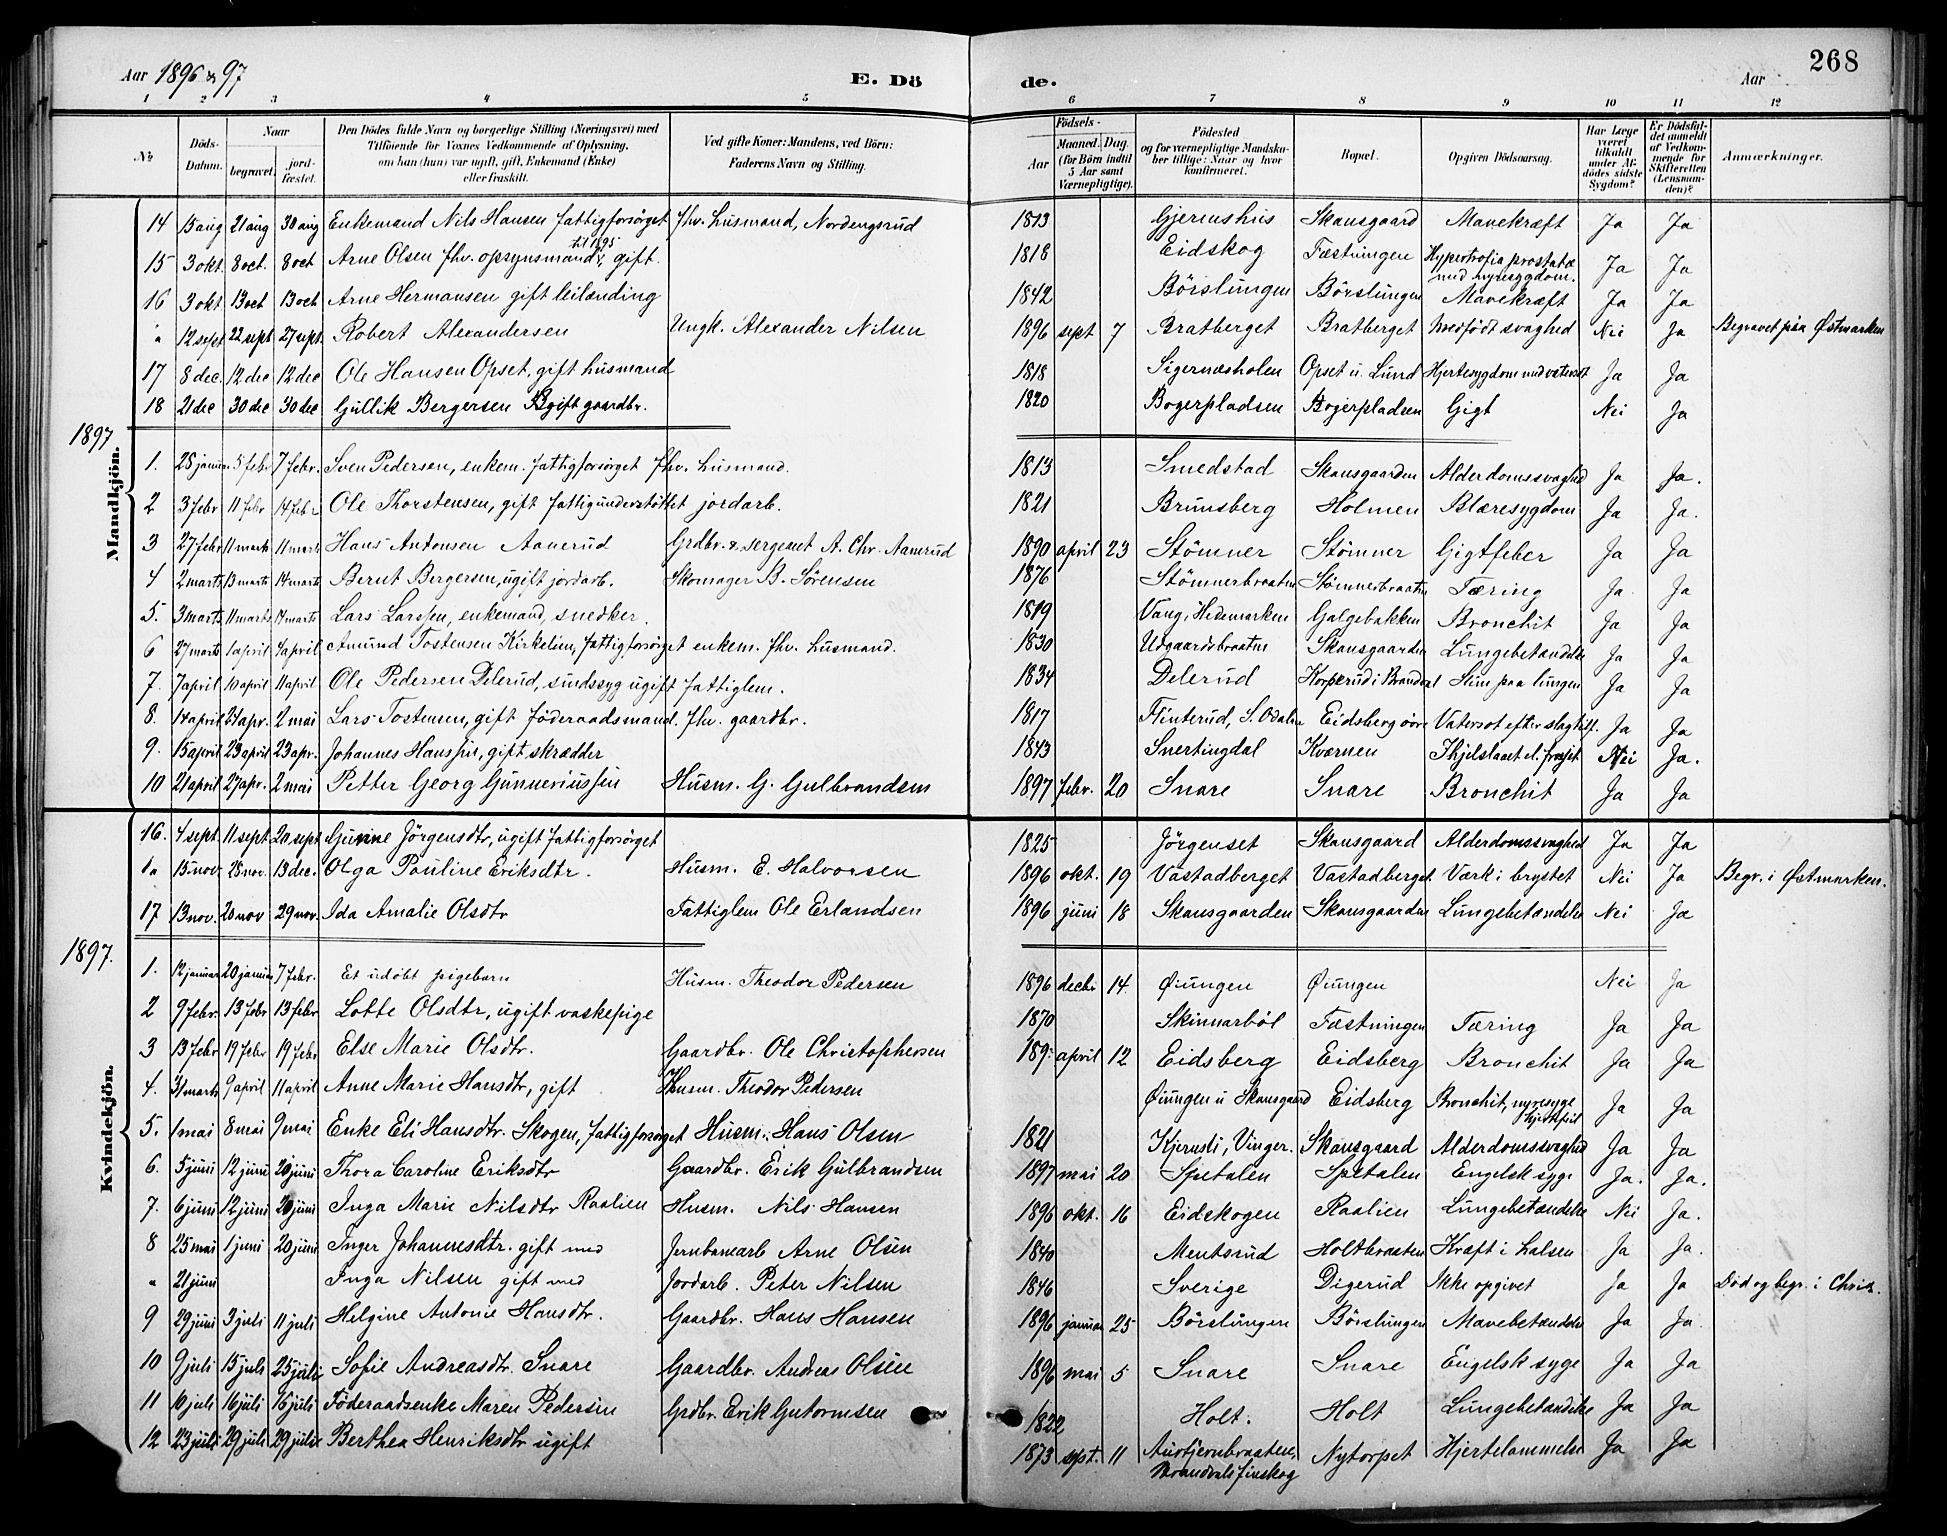 Aar 1896 & 97
E. Dö
de.
Aar
268
1 2 3 4 5 6 7 8 9 10 11 12
№ Döds-Datum. Naar begravet. jord-fæstet. Den Dödes fulde Navn og borgerlige Stilling (Næringsvei) med Tilföiende for Voxnes Vedkommende af Oplysning, om han (hun) var ugift, gift, Enkemand (Enke) eller fraskilt. Ved gifte Koner: Mandens, ved Börn: Faderens Navn og Stilling. Födsels- Aar Maaned. Dag. (for Börn indtil 5 Aar samt Værnepligtige). Födested og for værnepligtige Mandskaber tillige: Naar og hvor konfirmeret. Bopæl. Opgiven Dödsaarsag. Har Læge været tilkaldt under Afdödes sidste Sygdom? Er Dödsfaldet anmeldt af Vedkommende for Skifteretten (Lensmanden)? Anmærkninger.
14 15 aug 21 aug 30 aug Enkemand Nils Hansen fattigforsörget fhv. husmand, Nordengsrud 1813 Gjermshus Skansgaard Mavekræft Ja Ja
15 3 okt. 8 oct. 8 oct Arne Olsen fhv. opsynsmand til 1895, gift. 1818 Eidskog Fæstningen Hypertrofia prostatæ med nyresygdom. Ja Ja
16 3 okt 13 oct 13 oct Arne Hermansen gift leilænding 1842 Börslungen Börslungen Mavekræft Ja Ja
" 12 sept 22 sept 27 sept. Robert Alexandersen Ungk. Alexander Nilsen 1896 sept 7 Bratberget Bratberget medfödt svaghed Nei Ja Begravet paa Østmarken
17 8 dec. 12 dec 12 dec Ole Hansen Opset, gift husmand 1818 Sigernæsholen Opset u. Lund Hjertesygdom med vatersot Ja Ja
18 21 dec 30 dec 30 dec Gullik Bergersen gift gaardbr. 1820 Bogerpladsen Bogerpladsen Gigt Nei Ja
1897
Mandkjön.
1. 28 januar 5 febr 7 febr. Sven Pedersen, enkem. fattigforsörget fhv. husmand. 1813 Smedstad Skansgaarden Alderdomssvaghed Ja Ja.
2 3 febr 11 febr 14 febr Ole Thorstensen, gift fattigunderstöttet jordarb. 1821 Brunsberg Holmen Blæresygdom Ja Ja.
3 27 febr 11 marts 11 marts Hans Antonsen Aanerud Grdbr. & sergeant A. Chr. Aanerud 1890 april 23 Stömner Stömner Gigtfeber Ja Ja
4 2 marts 13 marts 14 marts Bernt Bergersen, ugift jordarb. Skomager B. Sörensen 1876 Stömnerbraaten Stömnerbraaten Tæring Ja Ja
5. 3 marts 11 marts 17 marts Lars Larssen, enkemand, snedker. 1819 Vang, Hedemarken Galgebakken Bronchit Ja Ja
6 27 marts 1 april 4 april Amund Tostensen Kirkelien, fattigforsörget enkem. fhv. husmand. 1830 Udgaardsbraaten Skansgaarden Lungebetændelse Ja Ja
7. 7 april 10 april 11 april Ole Pedersen Delerud, sindssyg ugift fattiglem. 1834 Delerud Korperud i Brandval Slim paa lungen Ja Ja
8. 14 april 24 apr. 2 mai Lars Tostensen, gift föderaadsmand. fhv. gaardbr. 1817 Flinterud, S. Odalen Eidsberg övre Vatersot efter slagtilf. Ja Ja
9. 15 april 23 april 23 apr. Johannes Hanssen, gift skrædder 1843 Snertingdal Kværnen Ihjelslaaet el. frosset Nei Ja.
10 21 april 27 apr. 2 mai Petter Georg Gunneriussen Husm. G. Gulbrandsen 1897 febr. 20 Snare Snare Bronchit Ja Ja
Kvindekjön.
16. 4 sept. 11 sept. 20 sept Gunine Jörgensdtr, ugift fattigforsörget 1825 Jörgenset Skansgaard Alderdomssvaghed Ja Ja
" 15 nov. 28 nov. 13 dec. Olga Pauline Eriksdtr. Husm. E. Halvorsen 1896 okt. 19 Vastadberget Vastadberget Værk i brystet Nei Ja Begr. i Østmarken.
17 13 nov. 20 nov 29 nov. Ida Amalie Olsdtr Fattiglem Ole Erlandsen 1896 juni 18 Skansgaarden Skansgaarden Lungebetændelse Nei Ja
1897.
1. 12 januar 20 januar 7 febr. Et udöbt pigebarn Husm. Theodor Pedersen 1896 decbr 14. Øiungen Øiungen Nei Ja
2 9 febr. 13 febr 13 febr Lotte Olsdtr, ugift vaskepige 1870 Skinnarböl Fæstningen Tæring Ja Ja
3 13 febr 19 febr 19 febr Else Marie Olsdtr. Gaardbr. Ole Christophersen 189 april 12 Eidsberg Eidsberg Bronchit Ja Ja
4. 31 marts 9 april 11 april Anne Marie Hansdtr, gift Husm. Theodor Pedersen Øiungen u Skansgaard Eidsberg Bronchit, nyresyge hjertefeil Ja Ja
5. 1 mai 8 mai 9 mai Enke Eli Hansdtr. Skogen, fattigforsörget Husm. Hans Olsen 1821 Kjernsli, Vinger. Skansgaard Alderdomssvaghed Ja Ja
6. 5 juni 12 juni 20 juni Thora Caroline Eriksdtr Gaardbr. Erik Gulbrandsen 1897 mai 20 Spetalen Spetalen Engelsk syge Ja. Ja.
7. 6 juni 12 juni 20 juni Inga Marie Nilsdtr Raalien Husm. Nils Hansen 1896 okt. 16 Eidskogen Raalien Lungebetændelse Nei Ja.
8 25 mai 1 juni 20 juni Inger Johannesdtr. gift med Jernbanearb Arne Olsen 1840 Mentsrud Holtbraaten Kræft i halsen Ja Ja.
" 21 juni Inga Nilsen gift med Jordarb. Peter Nilsen 1846 Sverige Digerud Ikke opgivet Ja Ja Död og begr. i Chria.
9 29 juni 3 juli 11 juli Helgine Antonie Hansdtr. Gaardbr. Hans Hansen 1896 januar 25 Börslungen Börslungen Mavebetændelse Ja Ja.
10 9 juli 15 juli 25 juli Sofie Andreasdtr. Snare Gaardbr. Andreas Olsen 1896 mai 5 Snare Snare Engelsk syge Ja Ja
11 10 juli 16 juli 16 juli Föderaadsenke Maren Pedersen Grdbr. Erik Gutormsen 1822 Holt. Holt Lungebetændelse Ja Ja
12 23 juli 29 juli 29 juli Berthea Henriksdtr ugift 1873 sept. 11 Aurtjernbraaten, Brandvals finskog Nytorpet Hjertelammelse Ja Ja